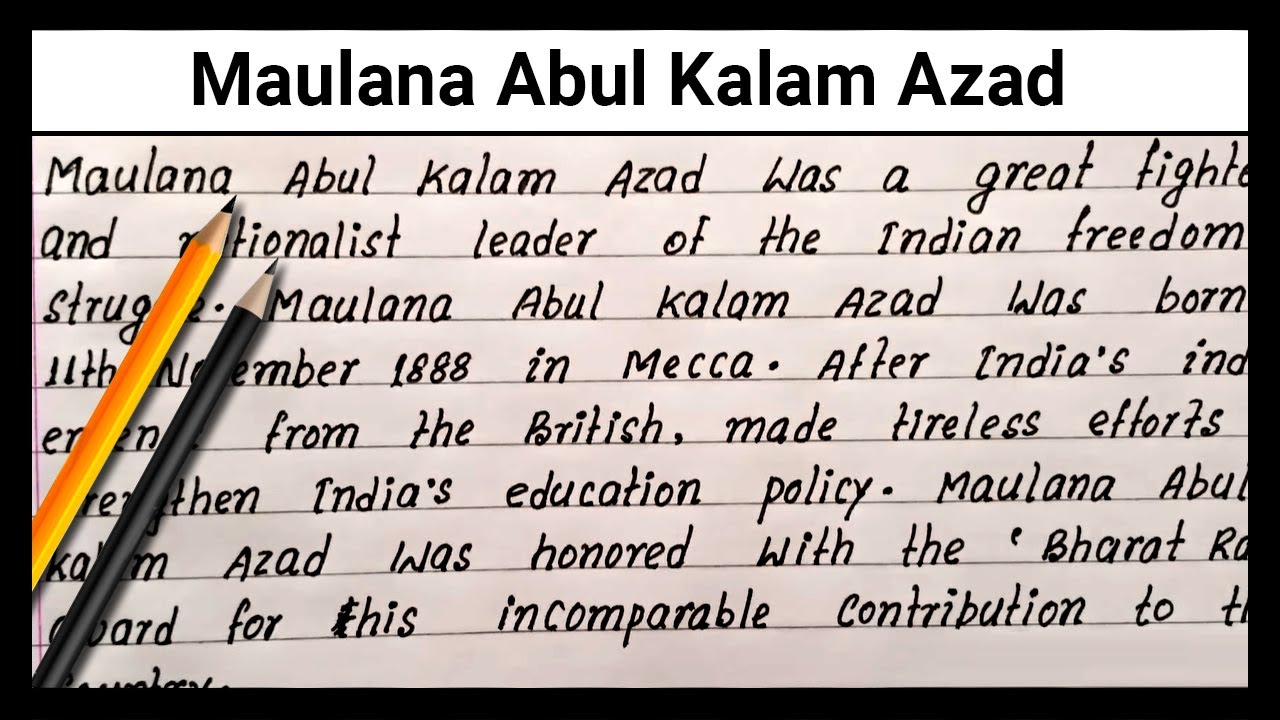 Maulana Abul Kalam Azad
Maulana Abul Kalam Azad Was a great fighte
and nationalist leader of the Indian freedom
struggle. Maulana Abul Kalam Azad Was born
11th November 1888 in Mecca. After India's ind
from the British, made tireless efforts
strengthen India's education policy. Maulana Abul
Kalam Azad Was honored With the ' Bharat Ra
award for this incomparable Contribution to th
Country.